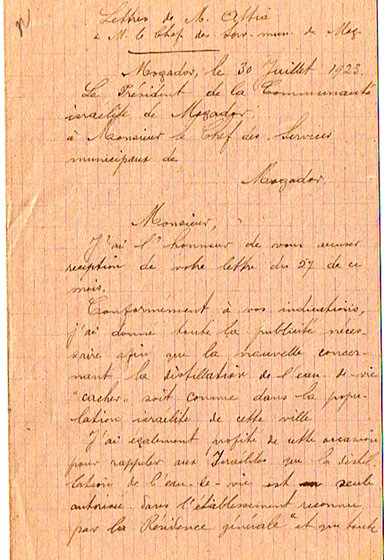 Lettres de M. Attia
à M. le Chef des Serv. mun. de Mog.
Mogador, le 30 Juillet 1923.
Le Président de la Communauté
israélite de Mogador,
à Monsieur le Chef des Services
municipaux de
Mogador.
Monsieur,
J'ai l'honneur de vous accuser
réception de votre lettre du 27 de ce
mois.
Conformément à vos indications,
j'ai donné toute la publicité néces-
saire afin que la nouvelle concer-
nant la distillation de l'eau-de-vie
"cacher" soit connue dans la popu-
lation israélite de cette ville.
J'ai également profité de cette occasion
pour rappeler aux Israélites que la distil-
lation de l'eau-de-vie est seule
autorisée dans l'établissement reconnu
par la Résidence générale et que toute